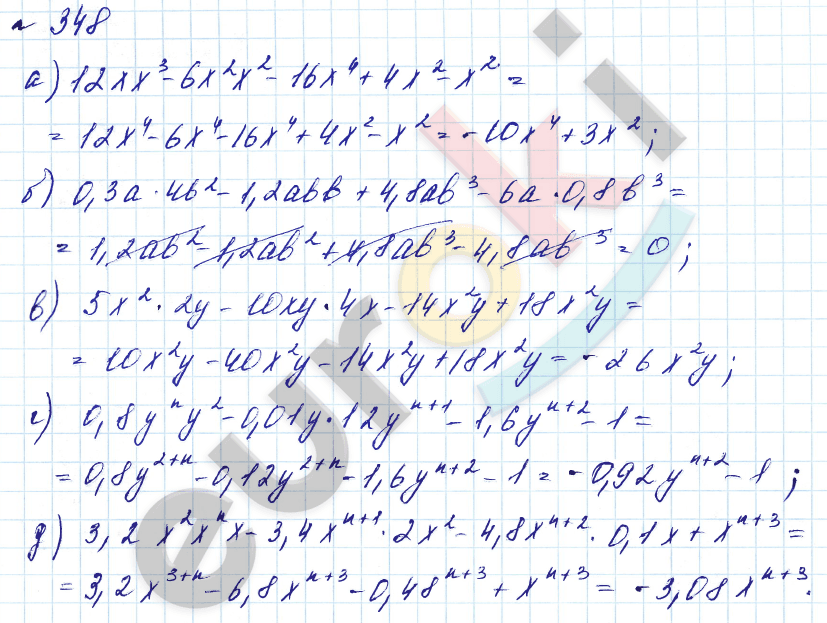 № 348
а) 12xx³ - 6x²x² - 16x⁴ + 4x² - x² =
= 12x⁴ - 6x⁴ - 16x⁴ + 4x² - x² = -10x⁴ + 3x²;
б) 0,3a · 4b² - 1,2abb + 4,8ab³ - 6a · 0,8b³ =
= 1,2ab² - 1,2ab² + 4,8ab³ - 4,8ab³ = 0;
в) 5x² · 2y - 10xy · 4x - 14x²y + 18x²y =
= 10x²y - 40x²y - 14x²y + 18x²y = -26x²y;
г) 0,8yⁿy² - 0,01y · 12yⁿ⁺¹ - 1,6yⁿ⁺² - 1 =
= 0,8y²⁺ⁿ - 0,12y²⁺ⁿ - 1,6yⁿ⁺² - 1 = -0,92yⁿ⁺² - 1;
д) 3,2x²xⁿx - 3,4xⁿ⁺¹ · 2x² - 4,8xⁿ⁺² · 0,1x + xⁿ⁺³ =
= 3,2x³⁺ⁿ - 6,8xⁿ⁺³ - 0,48ⁿ⁺³ + xⁿ⁺³ = -3,08xⁿ⁺³.
euroki